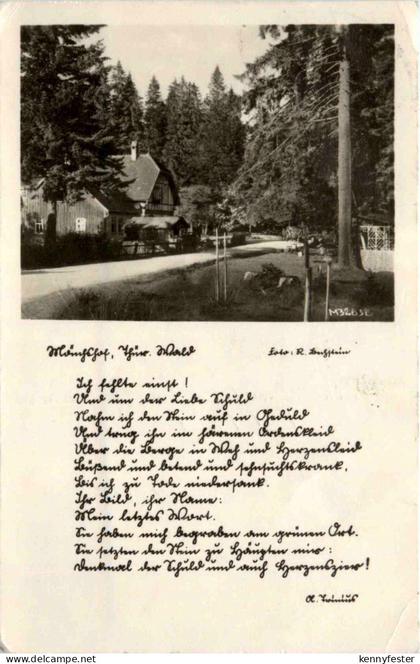 M3265E
Mönchshof, Thür. Wald
Foto: R. Bechstein
Ich fehlte einst!
Und um der Liebe Schuld
Nahm ich den Stein auf in Geduld
Und trug ihn im härenen Ordenskleid
Über die Berge in Weh und Herzensleid
Büßend und betend und sehnsuchtskrank,
Bis ich zu Tode niedersank.
Ihr Bild, ihr Name:
Mein letztes Wort.
Sie haben mich begraben am grünen Ort.
Sie setzten den Stein zu Häupten mir:
Denkmal der Schuld und auch Herzenszier!
A. Trinius
www.delcampe.net
kennyfester